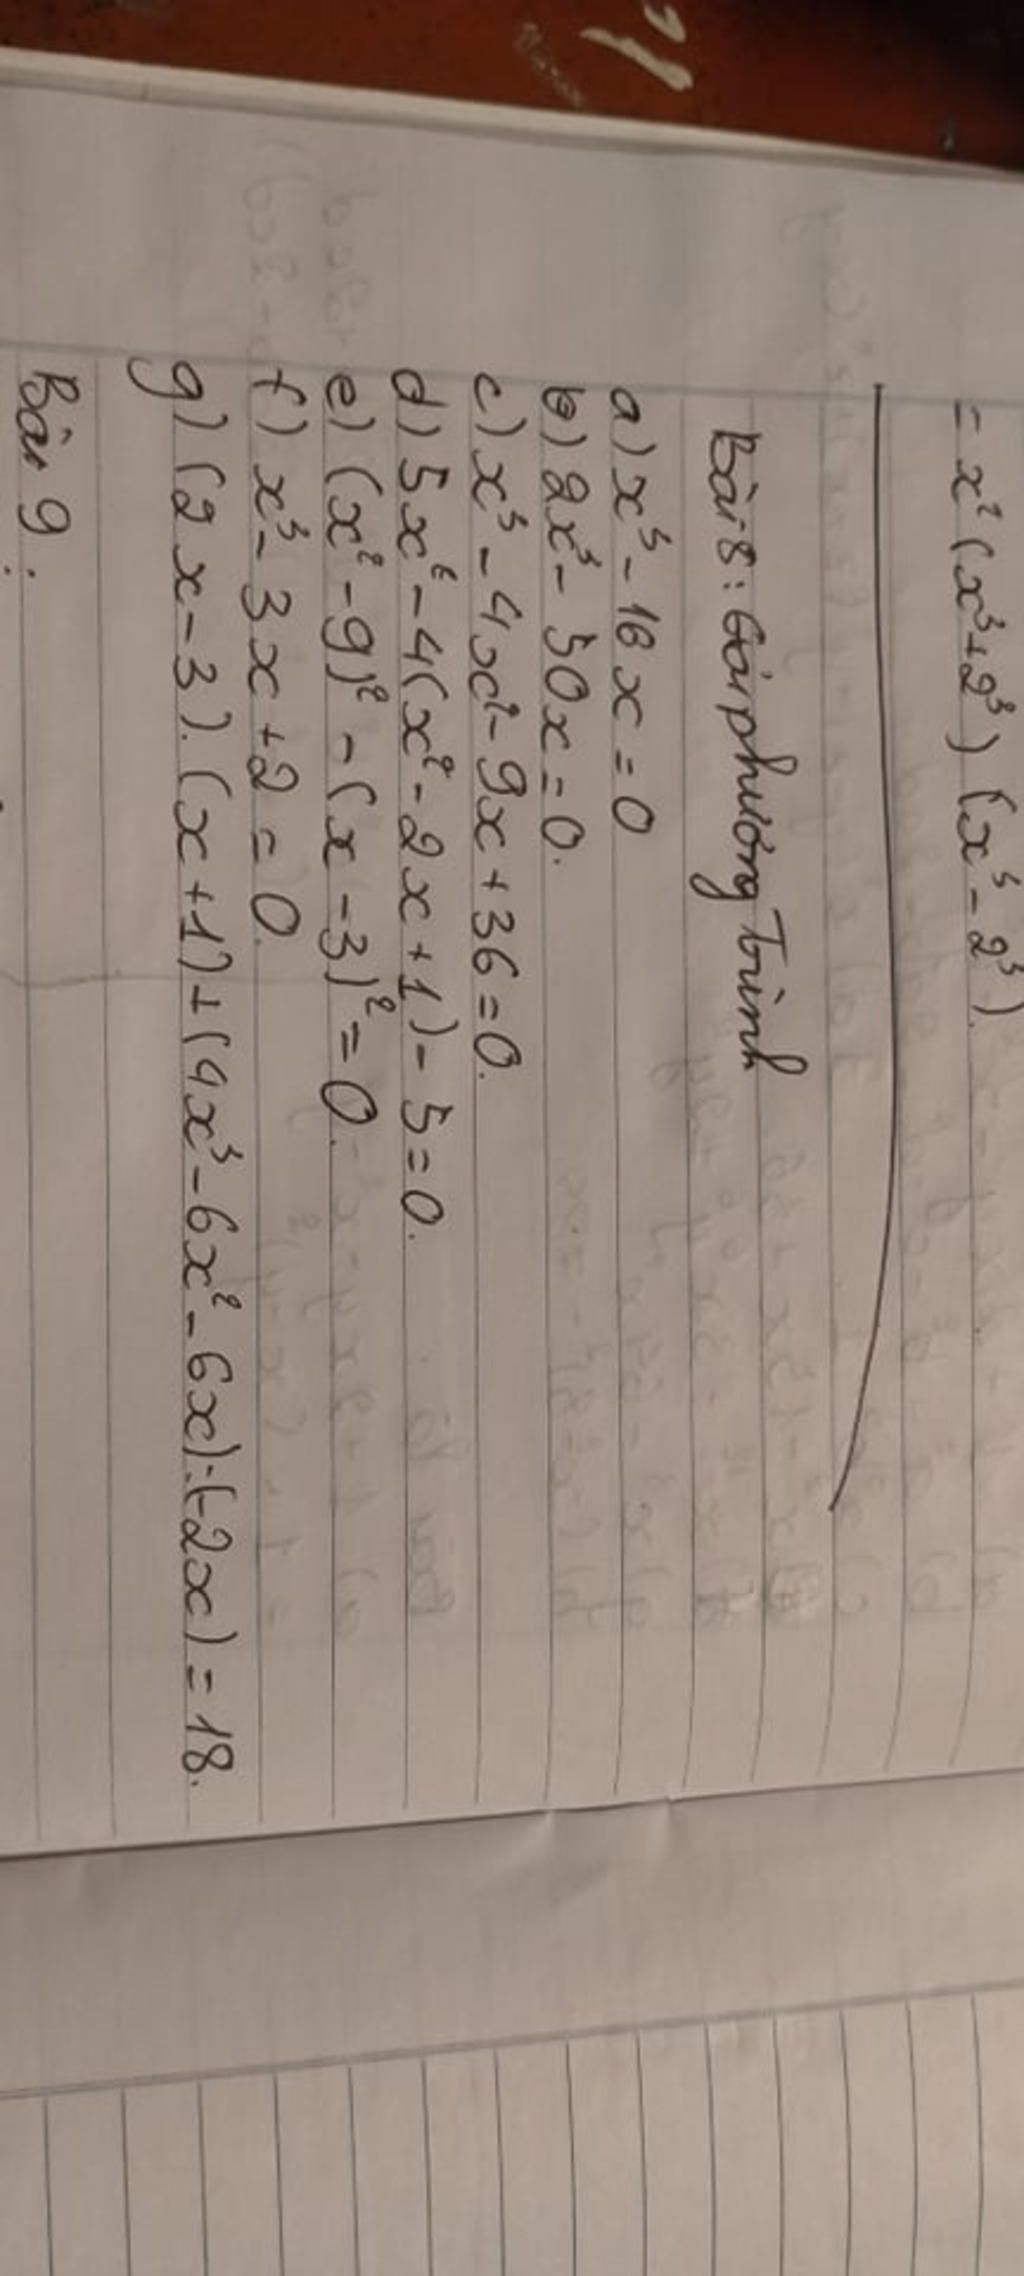 = x² (x³ + 2³) (x³ - 2³)
Bài 8: Giải phương Trình
a) x³ - 16x = 0
b) 2x³ - 50x = 0.
c) x³ - 4x² - 9x + 36 = 0.
d) 5x² - 4(x² - 2x + 1) - 5 = 0.
e) (x² - 9)² - (x - 3)² = 0.
f) x³ - 3x + 2 = 0.
g) (2x - 3). (x + 1) + (4x³ - 6x² - 6x) : (-2x) = 18.
Bài 9: